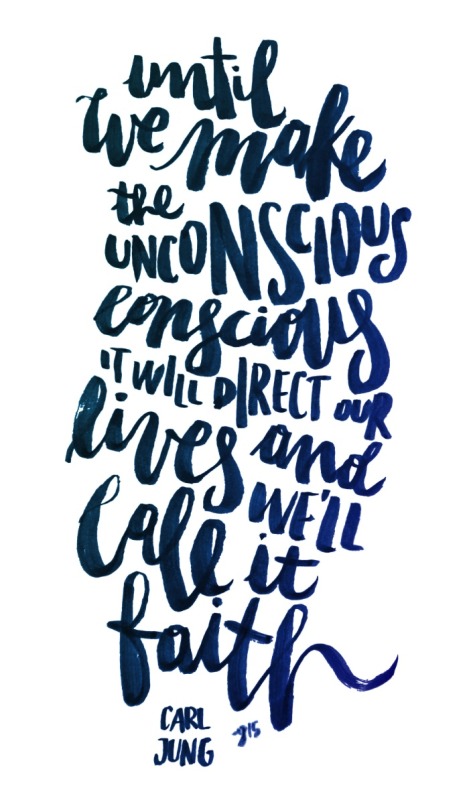 until
we make
the
UNCONSCIOUS
conscious
IT WILL DIRECT OUR
lives and
WE'LL
call it
faith
CARL
JUNG